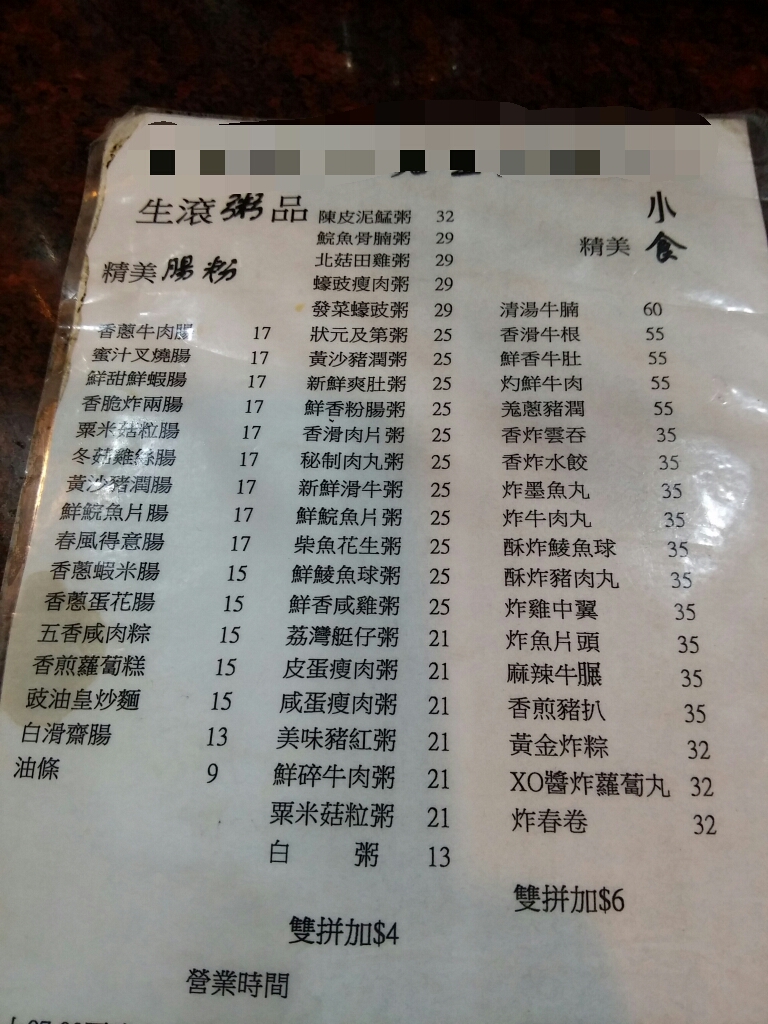 生滾粥品
陳皮泥鯭粥 32
鯇魚骨腩粥 29
北菇田雞粥 29
蠔豉瘦肉粥 29
發菜蠔豉粥 29
狀元及第粥 25
黃沙豬潤粥 25
新鮮爽肚粥 25
鮮香粉腸粥 25
香滑肉片粥 25
秘制肉丸粥 25
新鮮滑牛粥 25
鮮鯇魚片粥 25
柴魚花生粥 25
鮮鯪魚球粥 25
鮮香咸雞粥 25
荔灣艇仔粥 21
皮蛋瘦肉粥 21
咸蛋瘦肉粥 21
美味豬紅粥 21
鮮碎牛肉粥 21
粟米菇粒粥 21
白 粥 13
雙拼加$4
精美腸粉
香蔥牛肉腸 17
蜜汁叉燒腸 17
鮮甜鮮蝦腸 17
香脆炸兩腸 17
粟米菇粒腸 17
冬菇雞絲腸 17
黃沙豬潤腸 17
鮮鯇魚片腸 17
春風得意腸 17
香蔥蝦米腸 15
香蔥蛋花腸 15
五香咸肉粽 15
香煎蘿蔔糕 15
豉油皇炒麵 15
白滑齋腸 13
油條 9
精美小食
清湯牛腩 60
香滑牛根 55
鮮香牛肚 55
灼鮮牛肉 55
羗蔥豬潤 55
香炸雲吞 35
香炸水餃 35
炸墨魚丸 35
炸牛肉丸 35
酥炸鯪魚球 35
酥炸豬肉丸 35
炸雞中翼 35
炸魚片頭 35
麻辣牛𦟌 35
香煎豬扒 35
黃金炸粽 32
XO醬炸蘿蔔丸 32
炸春卷 32
雙拼加$6
營業時間